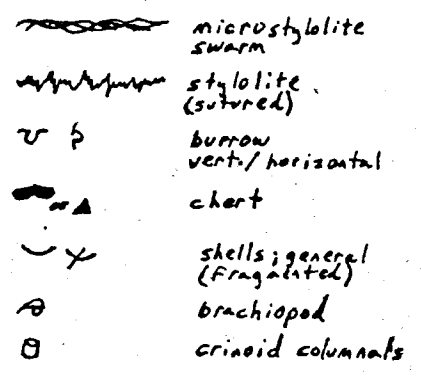 microstylolite
swarm
stylolite
(sutured)
burrow
vert./horizontal
or
chert
shells; general
(fragmented)
brachiopod
crinoid columnals